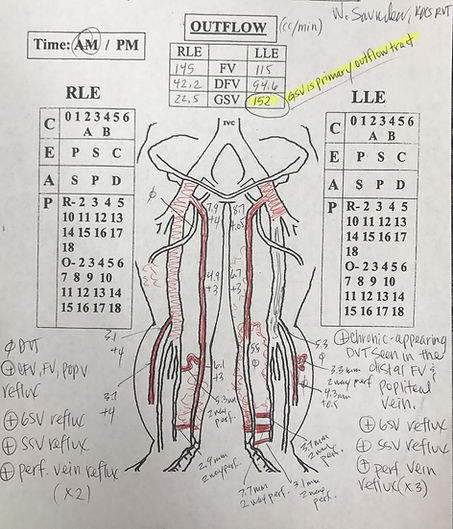 W. Saunders, RPCS RVT
OUTFLOW (cc/min)
Time: AM / PM
RLE LLE
145 FV 115
42,2 DFV 94,6
22,5 GSV 152
GSV is primary outflow tract
RLE
C 0 1 2 3 4 5 6
A B
E P S C
A S P D
P R- 2 3 4 5
10 11 12 13
14 15 16 17
18
O- 2 3 4 5 6
7 8 9 10
11 12 13 14
15 16 17 18
LLE
C 0 1 2 3 4 5 6
A B
E P S C
A S P D
P R- 2 3 4 5
10 11 12 13
14 15 16 17
18
O- 2 3 4 5 6
7 8 9 10
11 12 13 14
15 16 17 18
IVC
ϕ
7.9
+4
8.7
4.9
+3
6.7
+3
3.1
+4
3.7
+4
6.1
+3
5.3
ϕ
3.3 mm
2 way perf
4.3mm
+0.5
2 way perf.
2.9mm
2 way perf.
7.7mm
2 way perf.
3.1mm
2 way
perf.
3.7mm
2 way
perf.
ϕ DVT
⊕ CFV, FV, pop V
reflux
⊕ GSV reflux
⊕ SSV reflux
⊕ perf. vein reflux
(x2)
⊕ chronic-appearing
DVT seen in the
distal FV &
popliteal
vein.
⊕ GSV reflux
⊕ SSV reflux
⊕ perf vein
reflux (x3)